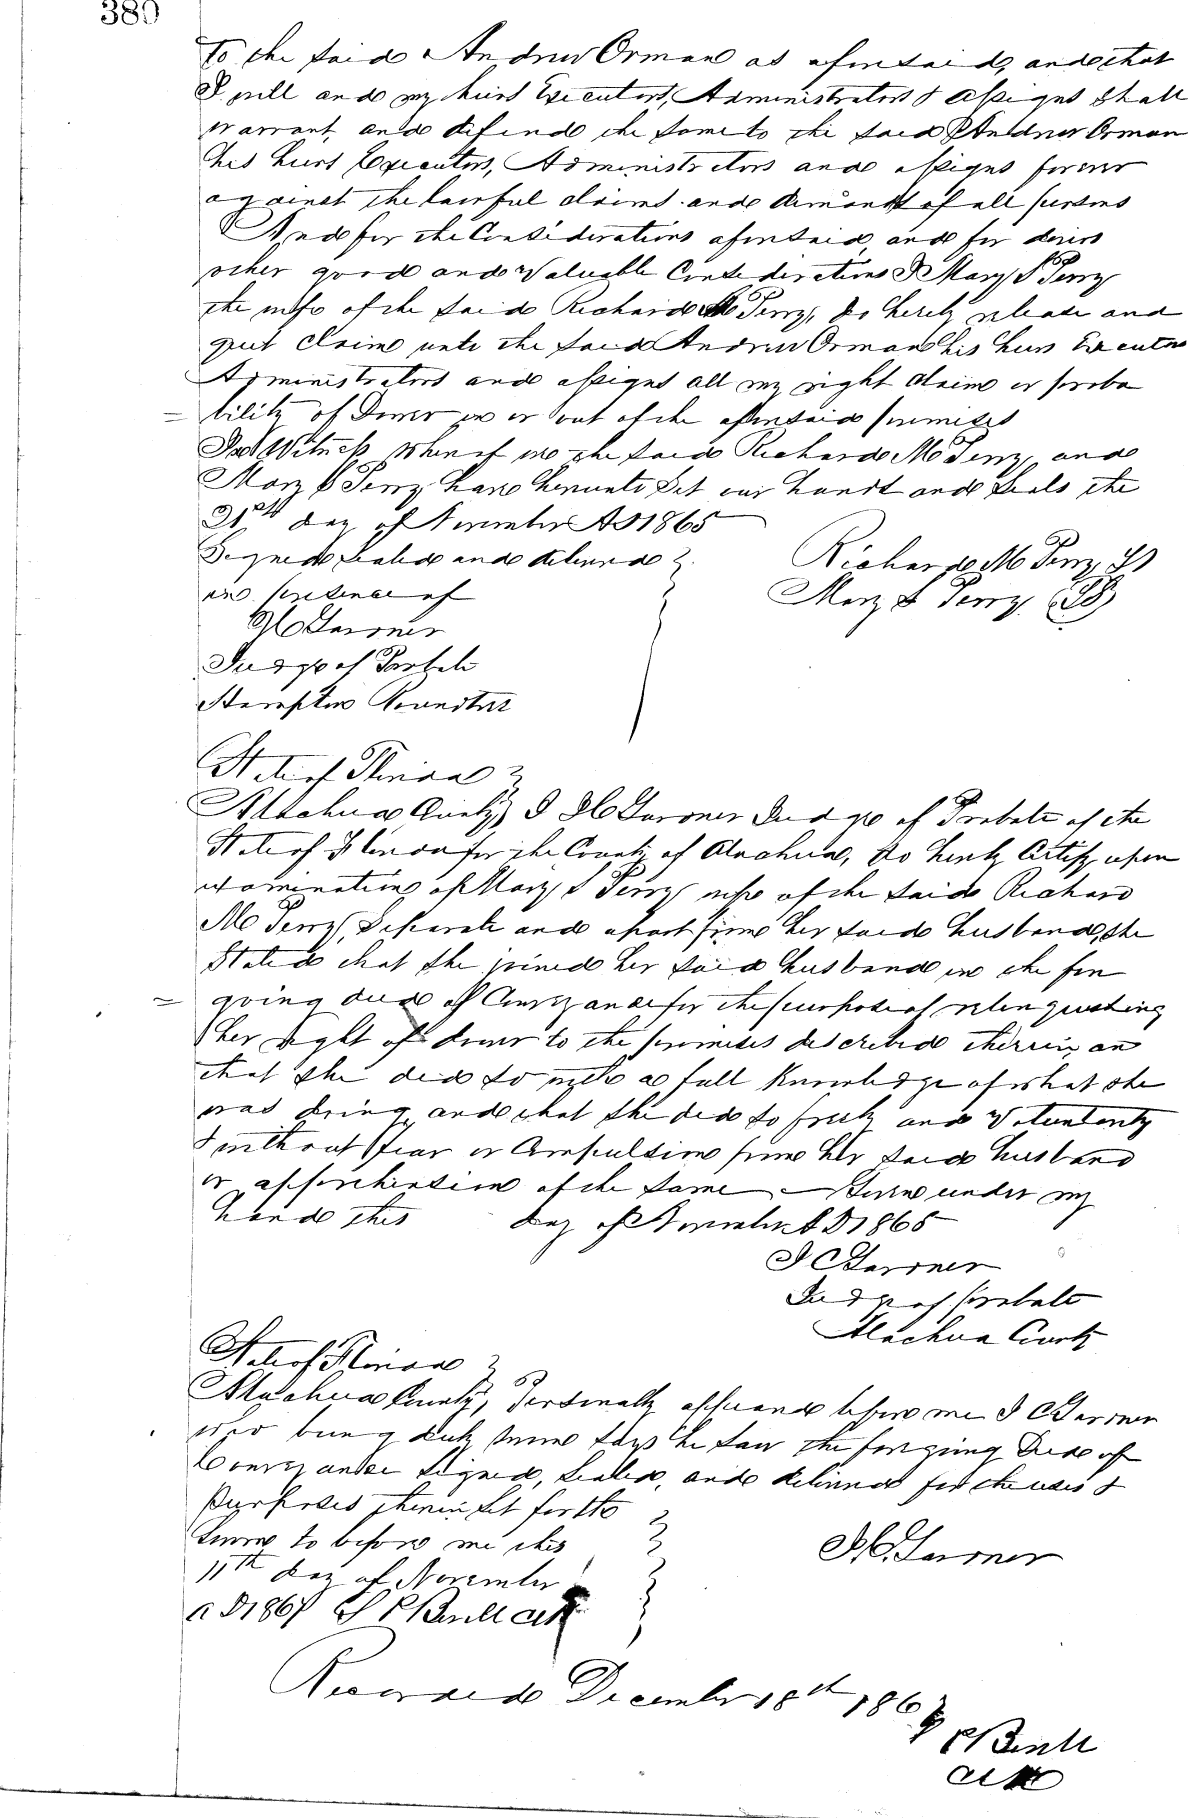 380
to the said Andrew Orman as aforesaid, and that
I will and my heirs Executors, Administrators & Assigns shall
warrant and defend the same to the said Andrew Orman
his heirs Executors, Administrators and assigns forever
against the lawful claims and demands of all persons
And for the Considerations aforesaid, and for divers
other good and Valuable Considerations I Mary S Perry
the wife of the said Richard M Perry, do hereby release and
quit claim unto the said Andrew Orman his heirs Executors
Administrators and assigns all my right claim or proba
= bility of Dower in or out of the aforesaid premises
In Witness whereof we the said Richard M Perry, and
Mary S Perry have hereunto set our hands and seals the
21st day of November AD 1865
Signed sealed and delivered
in presence of
Richard M Perry LS
Mary S Perry (LS)
Garoner
Judge of Probate
State of Florida
Alachua County, I Garoner Judge of Probate of the
State of Florida for the County of Alachua, do hereby Certify, upon
examination of Mary S Perry wife of the said Richard
M Perry, Separate and apart from her said husband, she
Stated that she joined her said husband in the fore
= going deed of Conveyance for the purpose of relinquishing
her right of dower to the premises described therein, an
that she did so with a full Knowledge of what she
was doing, and that she did so freely and Voluntarily
& without fear or Compulsion from her said husband
or apprehension of the same - Given under my
hand this day of November AD 1865
Garoner
Judge of Probate
Alachua County
State of Florida
Alachua County, Personally appeared before me Garoner
who being duly sworn says he saw the foregoing Deed of
Conveyance signed, sealed, and delivered for the uses &
purposes therein set forth
Sworn to before me this
11th day of November
AD 1867 Clk
Garoner
Recorded December 18th 1867
Clk